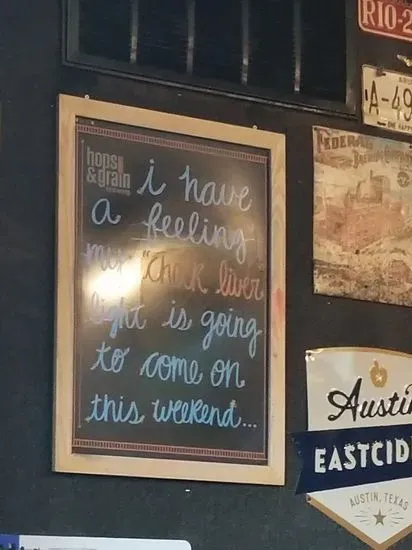 RIO-2
A-49
hops
& grain
i have
a feeling
my "check liver
light is going
to come on
this weekend...
FEDERAL
Austi
EASTCID
AUSTIN, TEXAS